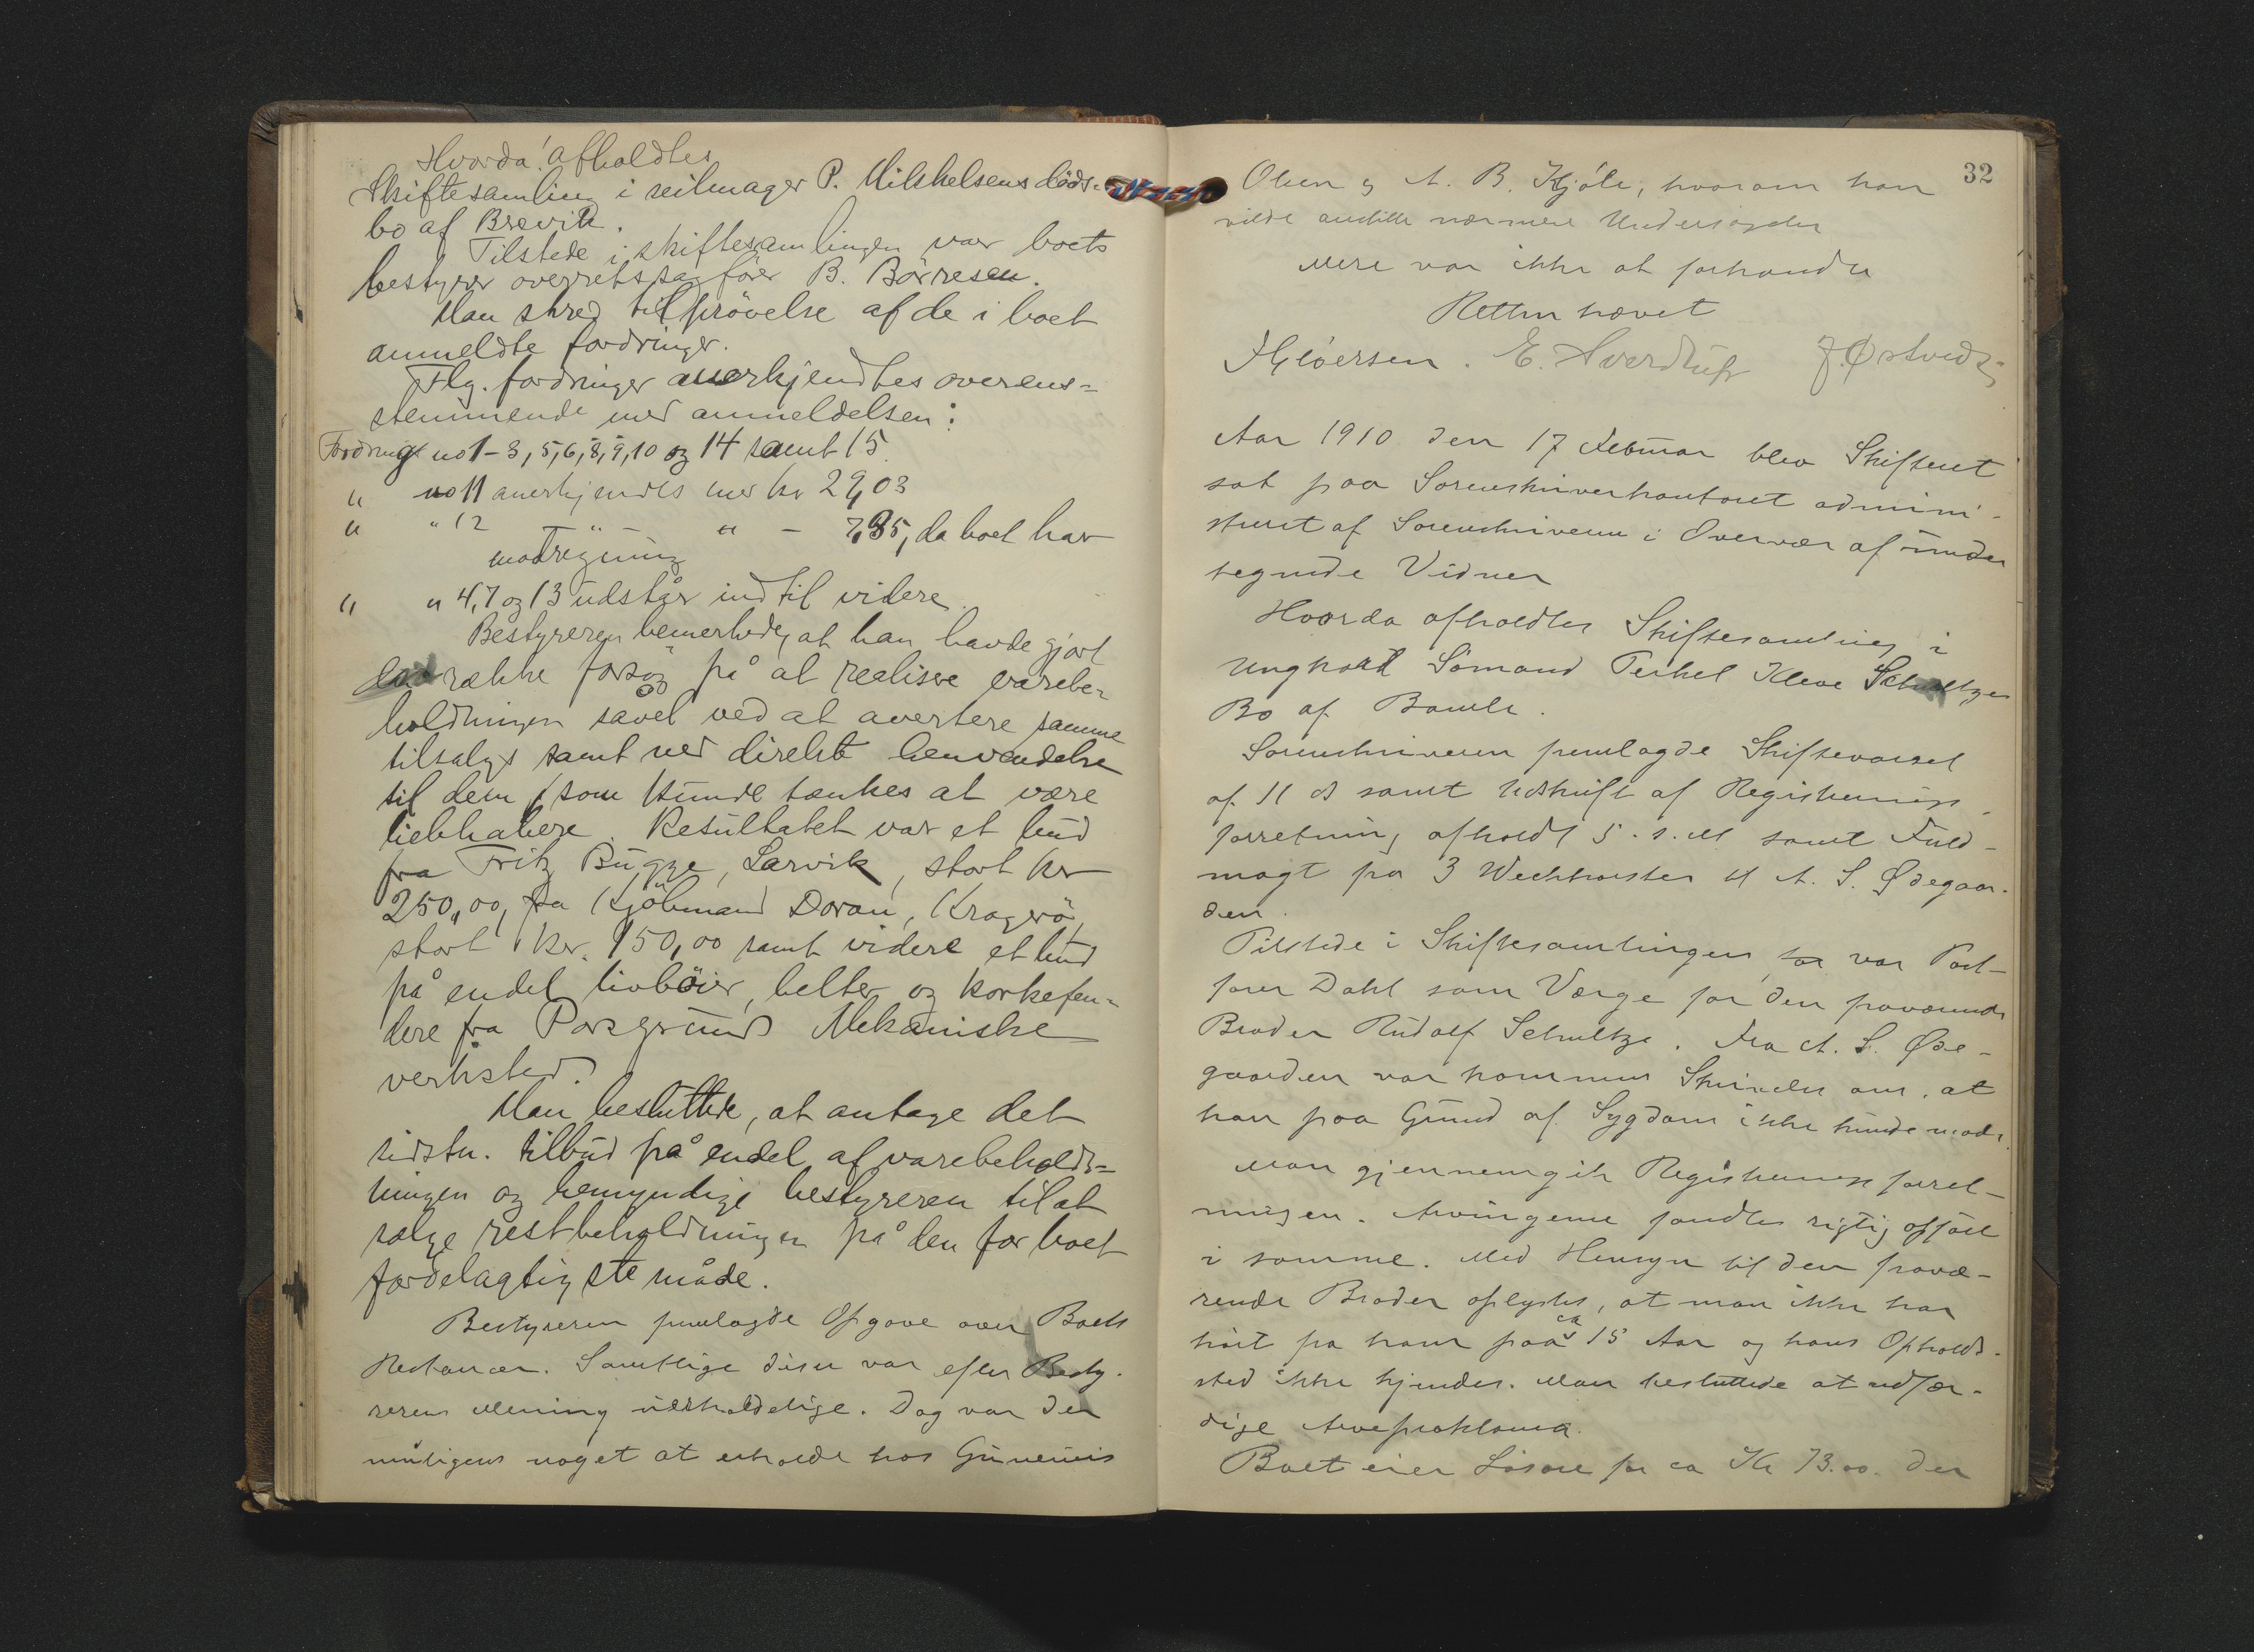 Hvorda! afholdtes
Skiftesamling i seilmager P. Mikkelsens döds-
bo af Brevik.
Tilstede i skiftesamlingen var boets
bestyrer overretssagförer B. Börresen.
Man skred til prövelse af de i boet
anmeldte fordringer.
Flg. fordringer anerkjendtes overens-
stemmende med anmeldelsen:
Fordring no 1-3, 5, 6, 8, 9, 10 og 14 samt 15.
" no 11 anerkjendes med kr 29,03
" " 12 - " - " - 7,35, da boet har
modregning
" " 4, 7 og 13 udstår indtil videre.
Bestyreren bemerkede, at han havde gjort
række forsög på at realisere varebe-
holdningen såvel ved at avertere samme
tilsalgs samt ved direkte henvendelse
til dem, som kunde tænkes at være
liebhabere. Resultatet var et bud
fra Fritz Bugge, Larvik, stort kr
250,00, fra Kjöbmand Doran, Kragerö,
stort kr. 150,00 samt videre et bud
på endel livböier, belter og korkefen-
dere fra Porsgrund Mekaniske
verksted.
Man besluttede, at antage det
sidstn. tilbud på endel af varebehold-
ningen og bemyndige bestyreren til at
sælge restbeholdningen på den for boet
fordelagtigste måde.
Bestyreren fremlagde Opgave over Boets
Restancer. Samtlige disse var efter Besty-
rerens Mening uerholdelige. Dog var der
muligens noget at erholde hos
32
Olsen og A. B. Kjöle, hvorom han
vilde anstille nærmere Undersøgelser
Mere var ikke at forhandle
Retten hævet
E. Sverdrup J. Østvedt
Aar 1910 den 17 Februar blev Skifteret
sat paa Sorenskriverkontoret admini-
streret af Sorenskriveren i Overvær af under
tegnede Vidner
Hvorda afholdtes Skiftesamling i
Ungkarl Sömand Terkel Kleve Schultzes
Bo af Bamle.
Sorenskriveren fremlagde Skiftevarsel
af 11 ds samt Udskrift af Registrerings-
forretning afholdt 5. s. M samt Fuld-
magt fra 3 til A. S. Ødegaar-
den.
Tilstede i Skiftesamlingen var
fører Dahl som Værge for den fraværende
Broder Rudolf Schultze. Fra A. S. Øde-
gaarden var kommen Skrivelse om, at
han paa Grund af Sygdom ikke kunde møde.
Man gjennemgik Registreringsforret-
ningen. Arvingerne fandtes rigtig opført
i samme. Med Hensyn til den fravæ-
rende Broder oplystes, at man ikke har
hört fra ham paa ca 15 Aar og hans Opholds-
sted ikke kjendes. Man besluttede at udfær-
dige Arveproklama.
Boet eier Lösöre for ca Kr 73.00. Der